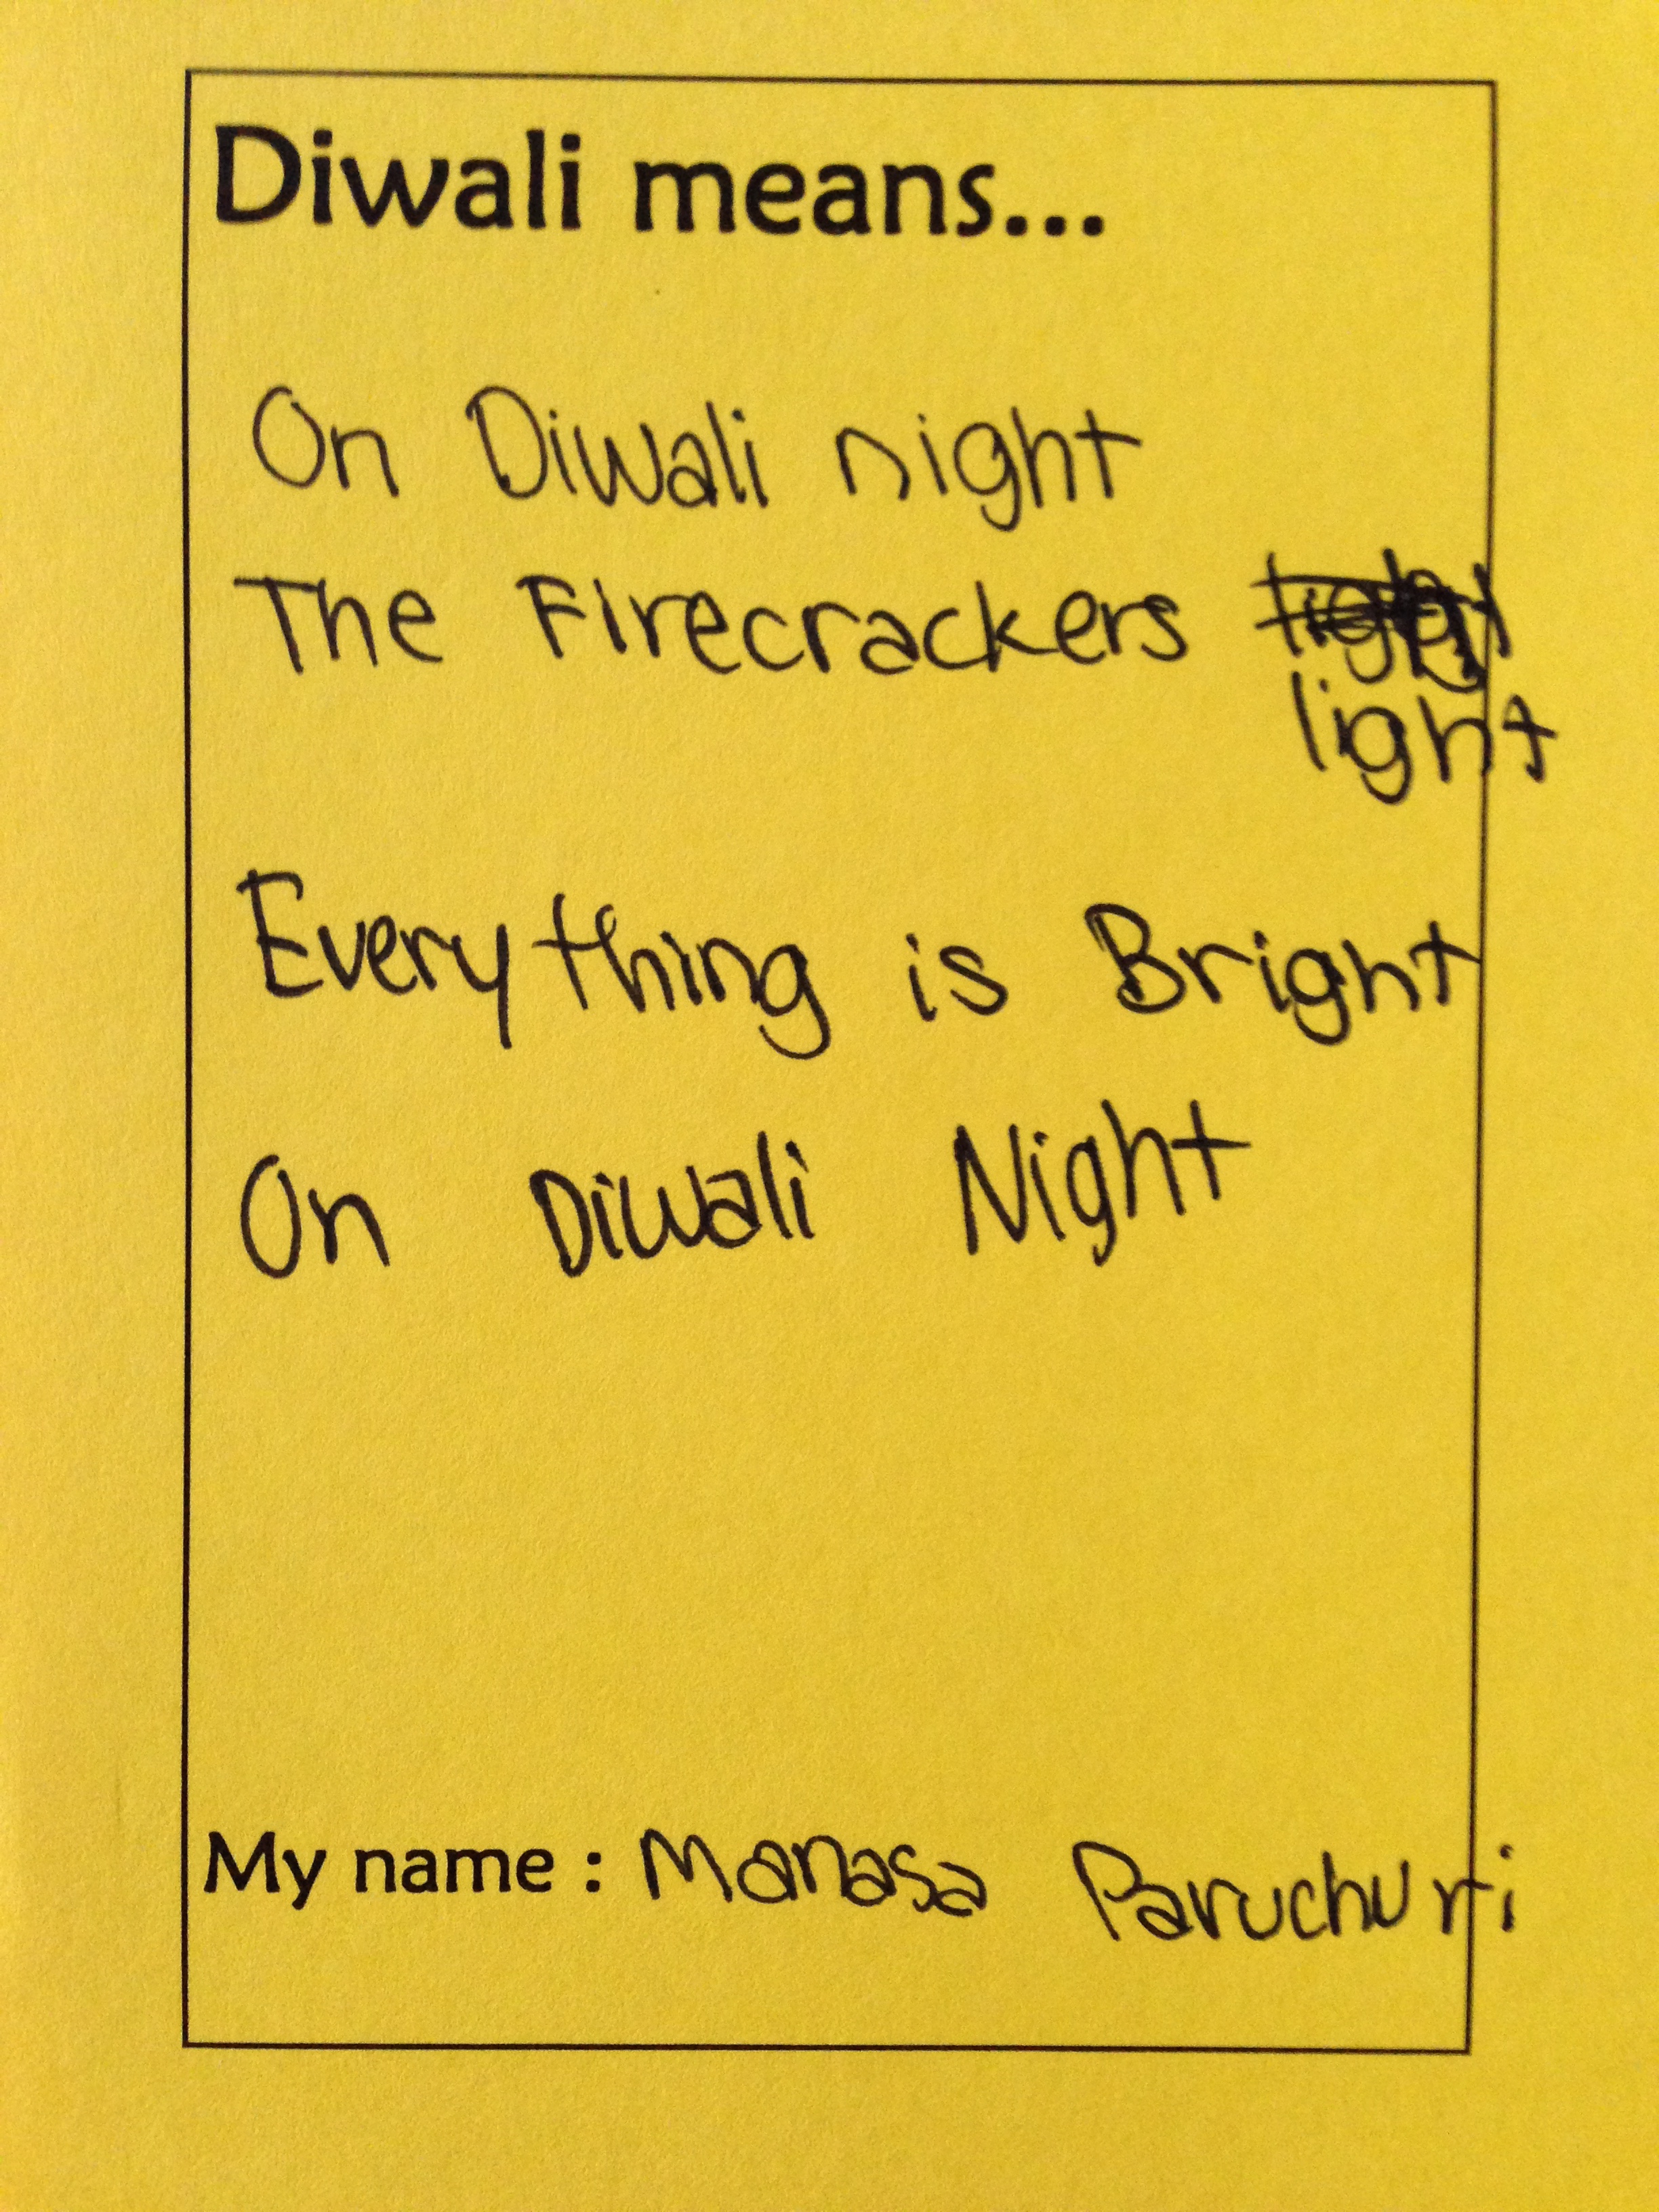 Diwali means...
On Diwali night
The Firecrackers
light
Everything is Bright
On Diwali Night
My name : Manasa Paruchuri